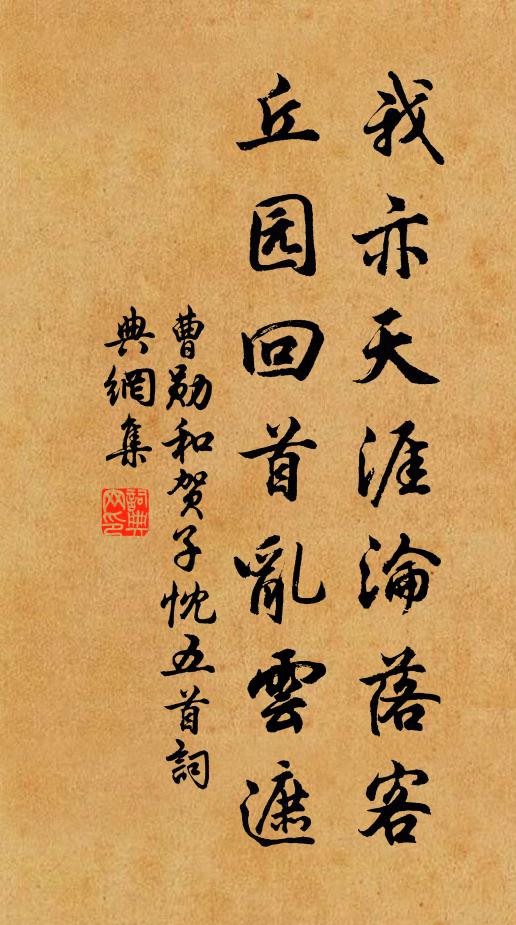 我亦天涯淪落客
丘园回首亂雲遮
曹勛和贺子忱五首詞
典網集
詞典
网印